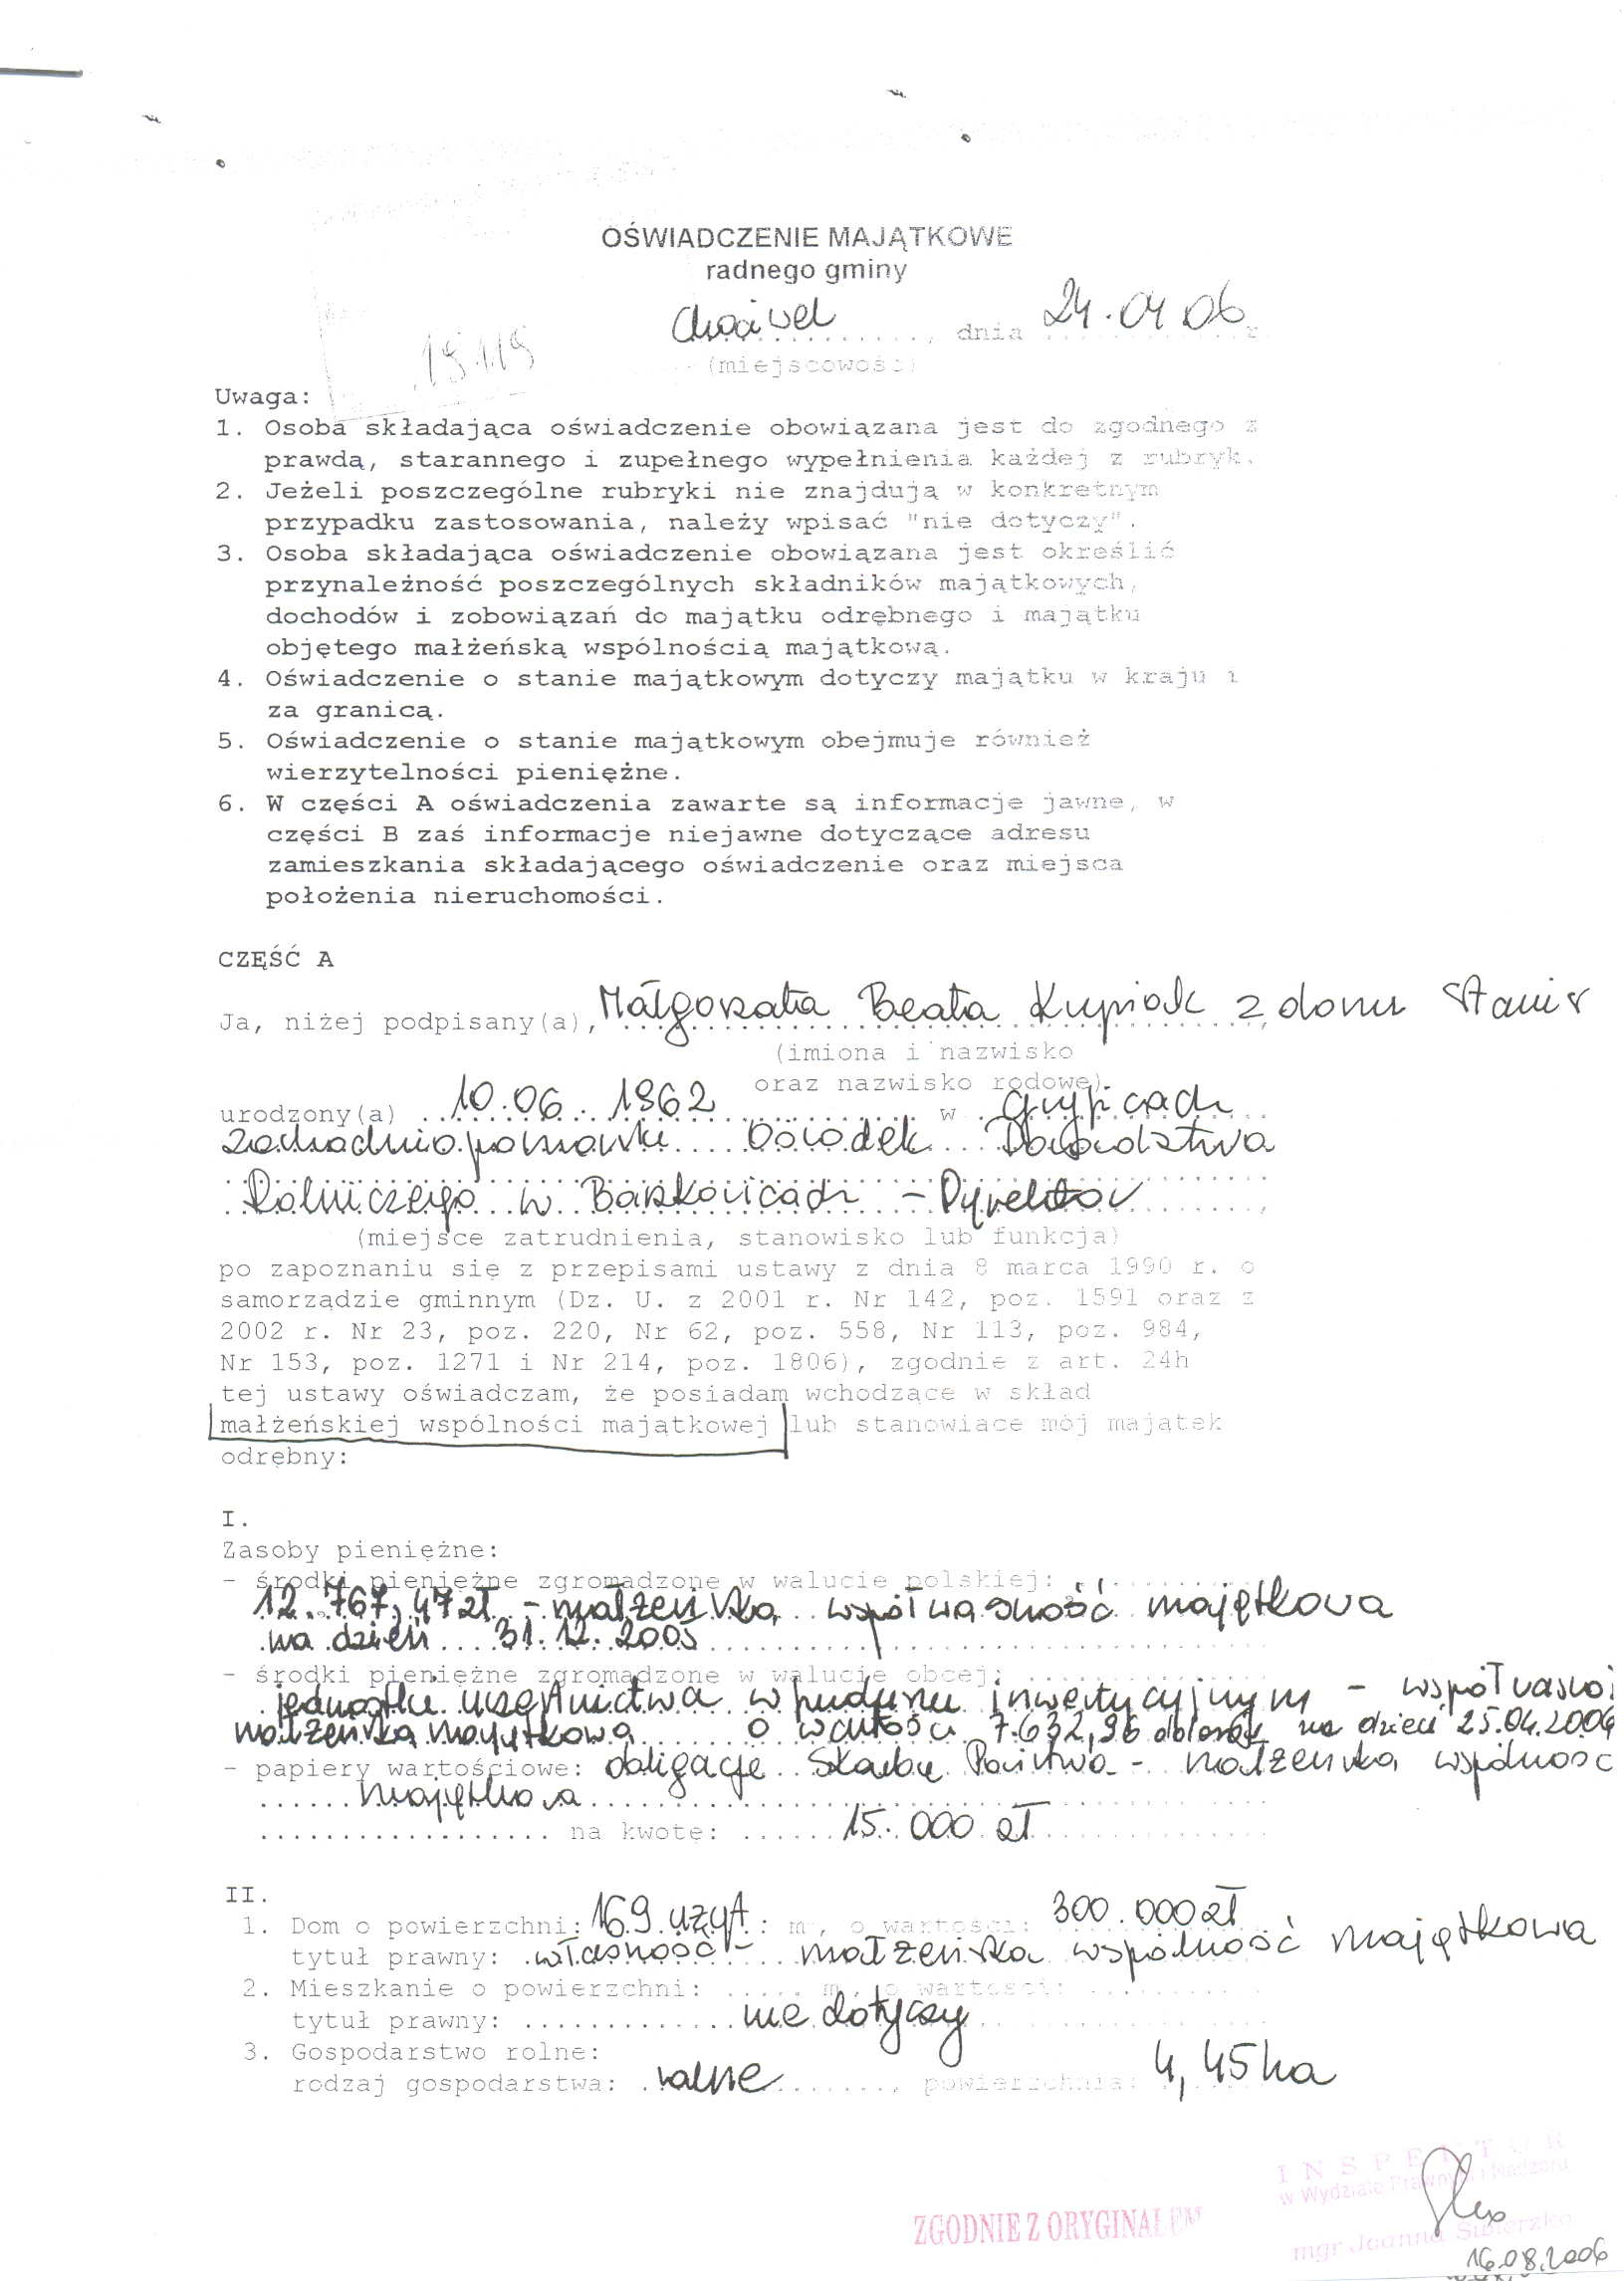 OŚWIADCZENIE MAJĄTKOWE
radnego gminy
Chociwel, dnia 24.04.06 r.
(miejscowość)
Uwaga:
1. Osoba składająca oświadczenie obowiązana jest do zgodnego z
prawdą, starannego i zupełnego wypełnienia każdej z rubryk.
2. Jeżeli poszczególne rubryki nie znajdują w konkretnym
przypadku zastosowania, należy wpisać "nie dotyczy".
3. Osoba składająca oświadczenie obowiązana jest określić
przynależność poszczególnych składników majątkowych,
dochodów i zobowiązań do majątku odrębnego i majątku
objętego małżeńską wspólnością majątkową.
4. Oświadczenie o stanie majątkowym dotyczy majątku w kraju i
za granicą.
5. Oświadczenie o stanie majątkowym obejmuje również
wierzytelności pieniężne.
6. W części A oświadczenia zawarte są informacje jawne, w
części B zaś informacje niejawne dotyczące adresu
zamieszkania składającego oświadczenie oraz miejsca
położenia nieruchomości.
CZĘŚĆ A
Ja, niżej podpisany(a), Małgorzata Beata Kupiak z domu
(imiona i nazwisko
oraz nazwisko rodowe)
urodzony(a) 10.06.1962 w Gryficach
Zachodniopomorski Ośrodek Doradztwa
Rolniczego w Barzkowicach - Dyrektor,
(miejsce zatrudnienia, stanowisko lub funkcja)
po zapoznaniu się z przepisami ustawy z dnia 8 marca 1990 r. o
samorządzie gminnym (Dz. U. z 2001 r. Nr 142, poz. 1591 oraz z
2002 r. Nr 23, poz. 220, Nr 62, poz. 558, Nr 113, poz. 984,
Nr 153, poz. 1271 i Nr 214, poz. 1806), zgodnie z art. 24h
tej ustawy oświadczam, że posiadam wchodzące w skład
małżeńskiej wspólności majątkowej lub stanowiące mój majątek
odrębny:
I.
Zasoby pieniężne:
- środki pieniężne zgromadzone w walucie polskiej:
12.767,47 zł - małżeńska współwasność majętkowa
na dzień 31.12.2005
- środki pieniężne zgromadzone w walucie obcej:
jednostki uczestnictwa w funduszu inwestycyjnym -
małżeńska majętkowa o wartości 7.632,96 dolarów na dzień 25.04.2006
- papiery wartościowe: obligacje Skarbu Państwa - małżeńska wspólność
majętkowa
na kwotę: 15.000 zł
II.
1. Dom o powierzchni: 169 użyt. m², o wartości: 300.000 zł
tytuł prawny: własność - małżeńska wspólność majętkowa
2. Mieszkanie o powierzchni: m², o wartości:
tytuł prawny: nie dotyczy
3. Gospodarstwo rolne:
rodzaj gospodarstwa: rolne, powierzchnia: 4,45 ha
INSPEKTOR
w Wydziale Prawnym i Nadzoru
ZGODNIE Z ORYGINAŁEM
mgr Joanna Świerzko
16.08.2006